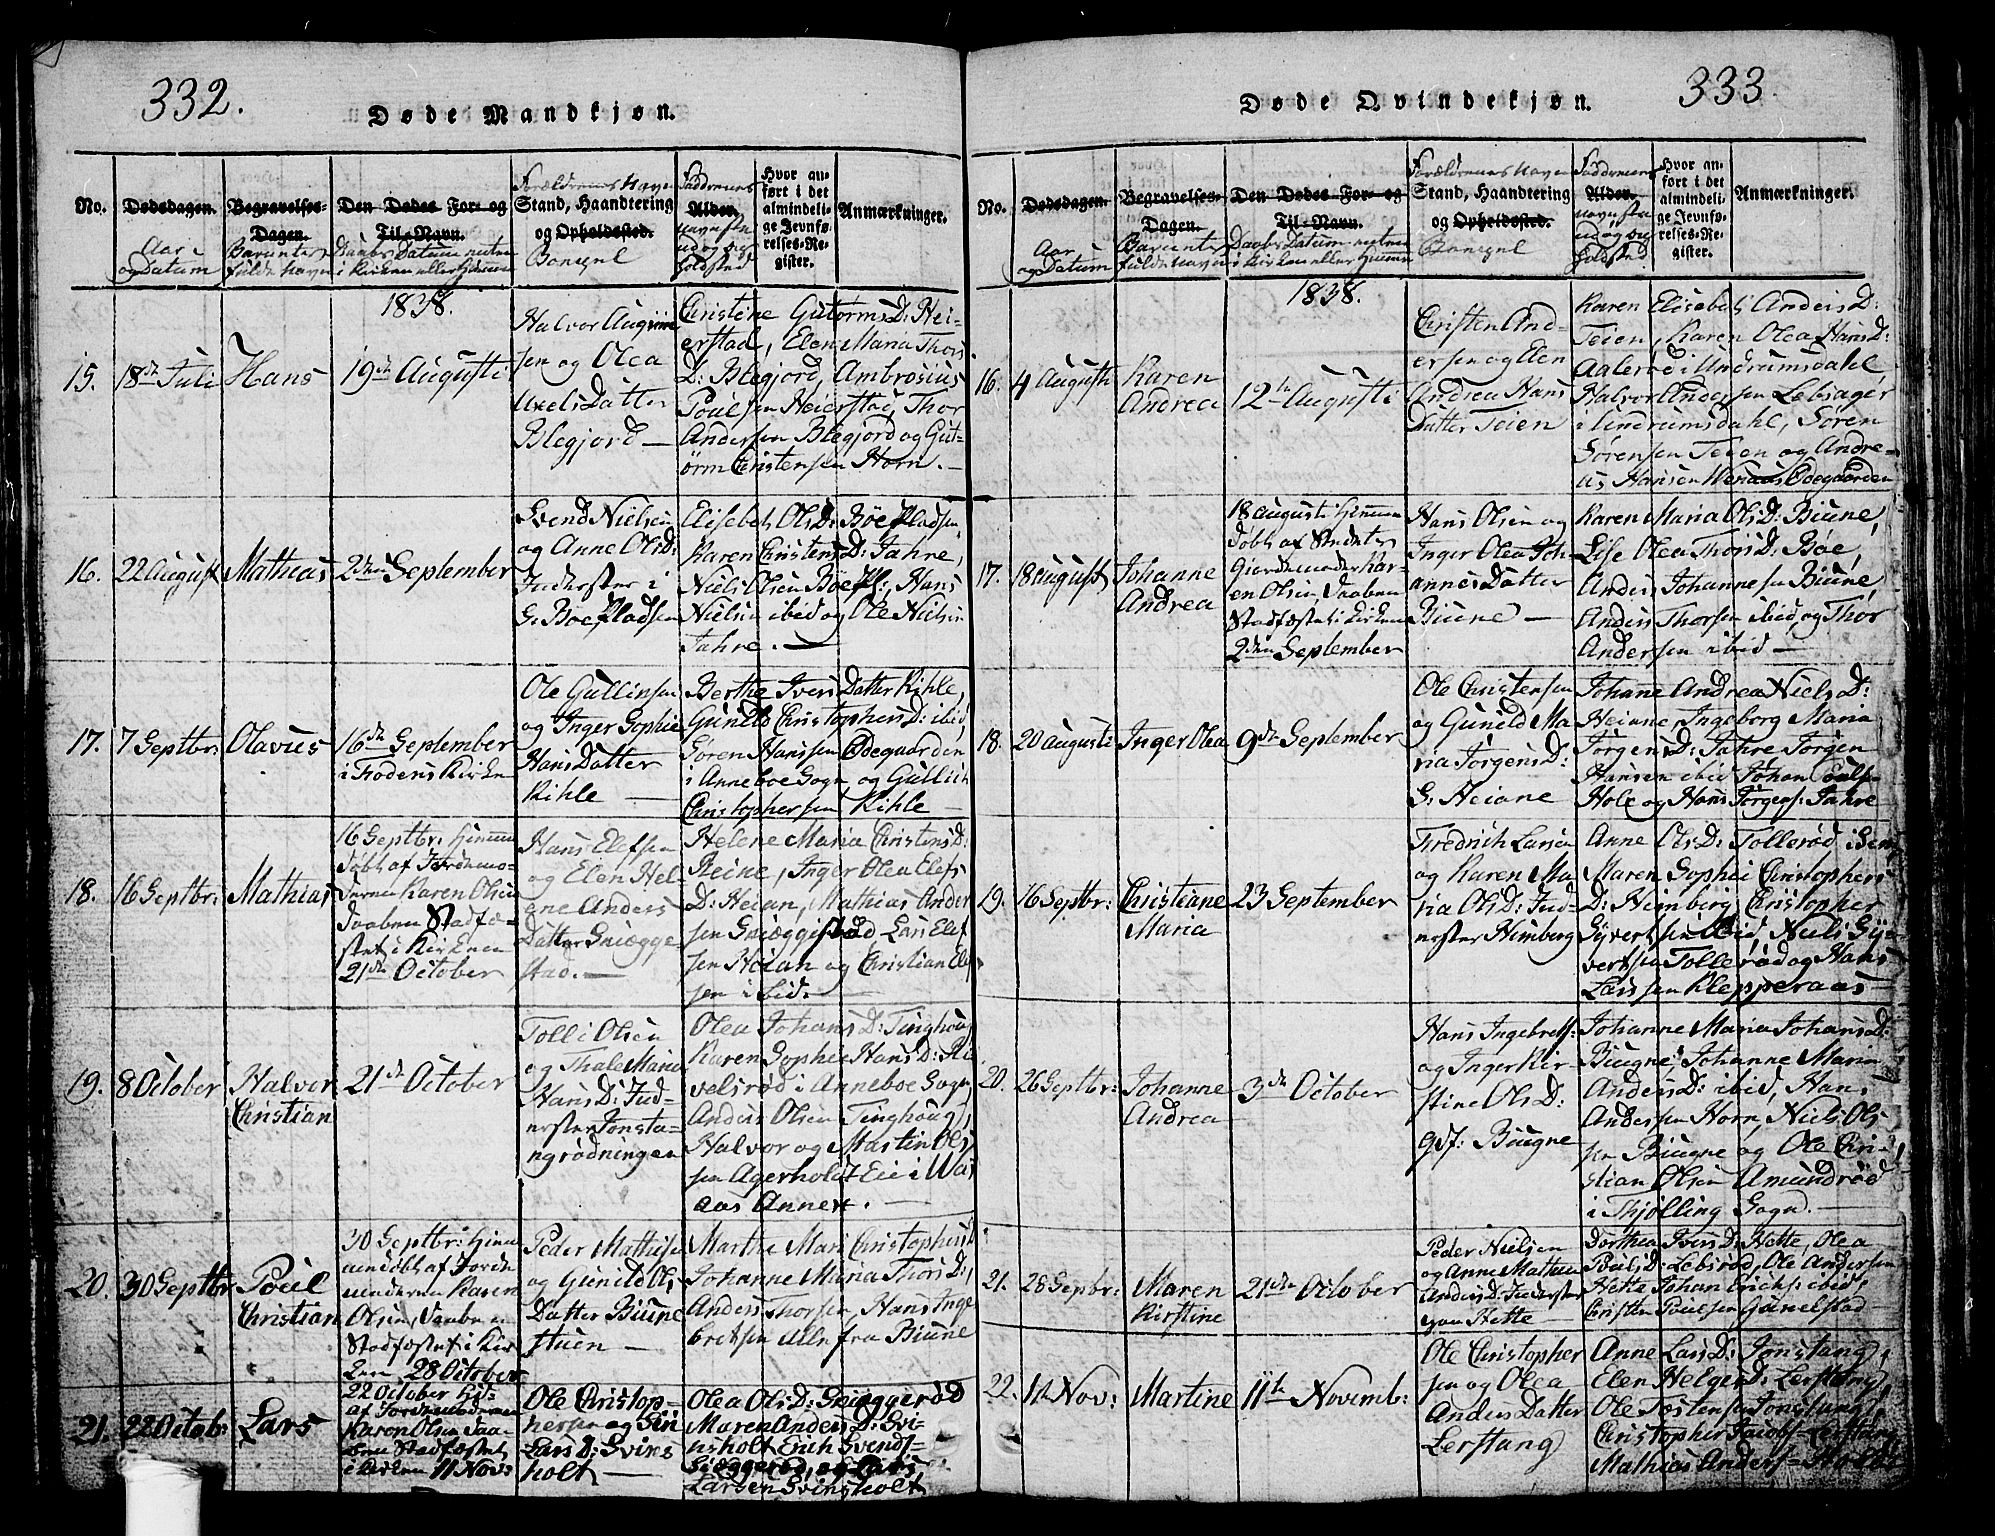 332.
Døde Mandkjøn.
No.
Dødsdagen.
Aar
og Datum
Begravelses-
Dagen.
Barnets
fulde Navn
Den Dødes For- og
Til-Navn.
Daabs Datum enten
i Kirken eller Hjemme
Forældrenes Navn
Stand, Haandtering
og Opholdssted.
Bopæl
Faddernes
Alder.
Navn
og Op
holdsted
Hvor an-
ført i det
almindeli-
ge Jevnfø-
relses-Re-
gister.
Anmærkninger.
1838.
15.
18de Juli
Hans
19de Augusti
Halvor
sen og Olea
Axels Datter
Blegjord —
Christine Gutorms D: Hei-
erstad, Elen Maria Thors
D: Blegjord, Ambrosius
Poulsen Heierstad, Thor
Andersen Blegjord og Gut-
orm Christensen Horn. —
16.
22 August
Mathias
2den September
Svend Nielsen
og Anne Ols D:
Inderster i
G. Bøe Pladsen
Elisebet Ols D: Bøe Pladsen
Karen Christens D: Jahre,
Niels Olsen Bøe Pl:, Hans
Nielsen ibid og Ole Nielsen
Jahre. —
17.
7 Septbr:
Olavus
16de September
i Fodens Kirke
Ole Gullinsen
og Inger Sophie
Hans Datter
Kihle —
Berthe Ivers Datter Kihle,
Gunild Christophers D: ibid,
Søren Hanssen Ødegaarden
i Anneboe Sogn, og Gullich
Christophersen Kihle —
18.
16 Septbr:
Mathias
16 Septbr: hjemme
døbt af Jordemo-
deren Karen Olsen
Daaben Stadfæ-
stet i Kirken
21de October
Hans Elefsen
og Elen Hel-
ene Anders
Datter Sniægge
stad. —
Helene Maria Christens D:
Reine, Inger Olea Elefs
D: Heian, Mathias Ander
sen Sniæggestad Lars Elef
sen Heian og Christian Elef
sen ibid.
19.
8 October
Halvor
Christian
21de October
Tolle Olsen
og Thale Maria
Hans D: Ind-
erster Jonsta-
ngrødningen
Olea Johans D: Tinghoug
Karen Sophie Hans D: Ri
velsrød i Anneboe Sogn
Anders Olsen Tinghoug,
Halvor og Martin Ols
sen Agerholdt Eie i Was
aas Annex. —
20.
30 Septbr
Poul
Christian
30 Septbr: Hiem
mendøbt af Jorde
moderen Karen
Olsen, Daaben
Stadfæstet i Kir
ken 28 October
Peder Mathisen
og Gunild Ols
Datter Biune
stuen —
Marthe Mari Christophers D
Johanne Maria Thors D:,
Anders Thorsen, Hans Inge
bretsen alle fra Biune
21.
22 Octob:
Lars
22 October
af Jordemoderen
Karen Olsen Daa-
ben Stadfæstet
i Kirken 11 Nov:
Ole Christop-
hersen og Siri
Lars D: Svins
holt —
Olea Ols D: Sniæggerød
Maren Anders D: Svi-
nsholt Erich Svends-
Sniæggerød, og Lars
Larsen Svinsholt
333.
Døde Qvindekjøn.
No.
Dødsdagen.
Aar
og Datum
Begravelses-
Dagen.
Barnets
fulde Navn
Den Dødes For- og
Til-Navn.
Daabs Datum enten
i Kirken eller Hjemme
Forældrenes Navn
Stand, Haandtering
og Opholdssted.
Bopæl
Faddernes
Alder.
Navn
og Op
holdsted
Hvor an-
ført i det
almindeli-
ge Jevnfø-
relses-Re-
gister.
Anmærkninger.
1838.
16.
4 Augusti
Karen
Andrea
12te Augusti
Christen And-
ersen og Elen
Andrea Hans
Datter Teien
Karen Elisebet Anders D:
Teien, Karen Olea Hans D:
Aalerød i Undrumsdahl,
Halvor Andersen Lebsager
i Undrumsdahl, Søren
Sørensen Teien og Andre-
as Hansen Ødegaarden
17.
18 August
Johanne
Andrea
18 Augusti hjemme
døbt af
Giordemoder Kar-
en Olsen, Daaben
Stadfæstet i Kirken
2den September
Hans Olsen og
Inger Olea Joh-
annes Datter
Biune —
Karen Maria Ols D: Biune,
Lise Olea Thors D: Bøe,
Anders Johannesen Biune,
Anders Thorsen ibid, og Thor
Andersen ibid —
18.
20 Augusti
Inger Olea
9de September
Ole Christensen
og Gunild Ma-
ria Jørgens D:
G. Heiane
Johanne Andrea Niels D:
Heiane, Ingeborg Maria
Jørgens D: Jahre Jørgen
Hansen ibid Johan Pouls-
Hole og Hans Jørgens: Jahre
19.
16 Septbr:
Christiane
Maria
23 September
Fredrich Larsen
og Karen Ma-
ria Ols D: Ind-
erster Himberg
Anne Ols D: Tollerød i
Maren Sophie Christophers
D: Himberg, Christopher
Syvertsen ibid, Niels Sy-
vertsen Tollerød og Hans
Larssen Klepperaas —
20.
26 Septbr:
Johanne
Andrea
3de October
Hans Ingebrets:
og Inger Kir-
stine Ols D:
Gdf: Biugne
Johanne Maria Johans D:
Biugne, Johanne Maria
Anders D: ibid, Hans
Andersen Horn, Niels Ols
sen Biugne og Ole Chri-
stian Olsen Amundrød
i Thjølling Sogn. —
21.
28 Sepbr:
Maren
Kirstine
21de October
Peder Nielsen
og Anne Mathea
Anders D: Inderster
paa Hette —
Dorthea Ivers D: Hette, Olea
Pouls D: Lebsrød, Ole Andersen
Hette Johan Erichs: ibid,
Christen Poulsen, Gunelstad
22.
1te Nov:
Martine
11te Novemb:
Ole Christopher
sen og Olea
Anders Datter
Lerstang
Anne Lars D: Jonstang,
Elen Helger D: Lerstang,
Ole Tostensen Jonstang,
Christopher Jacobs- Lerstang
Mathias Anders-